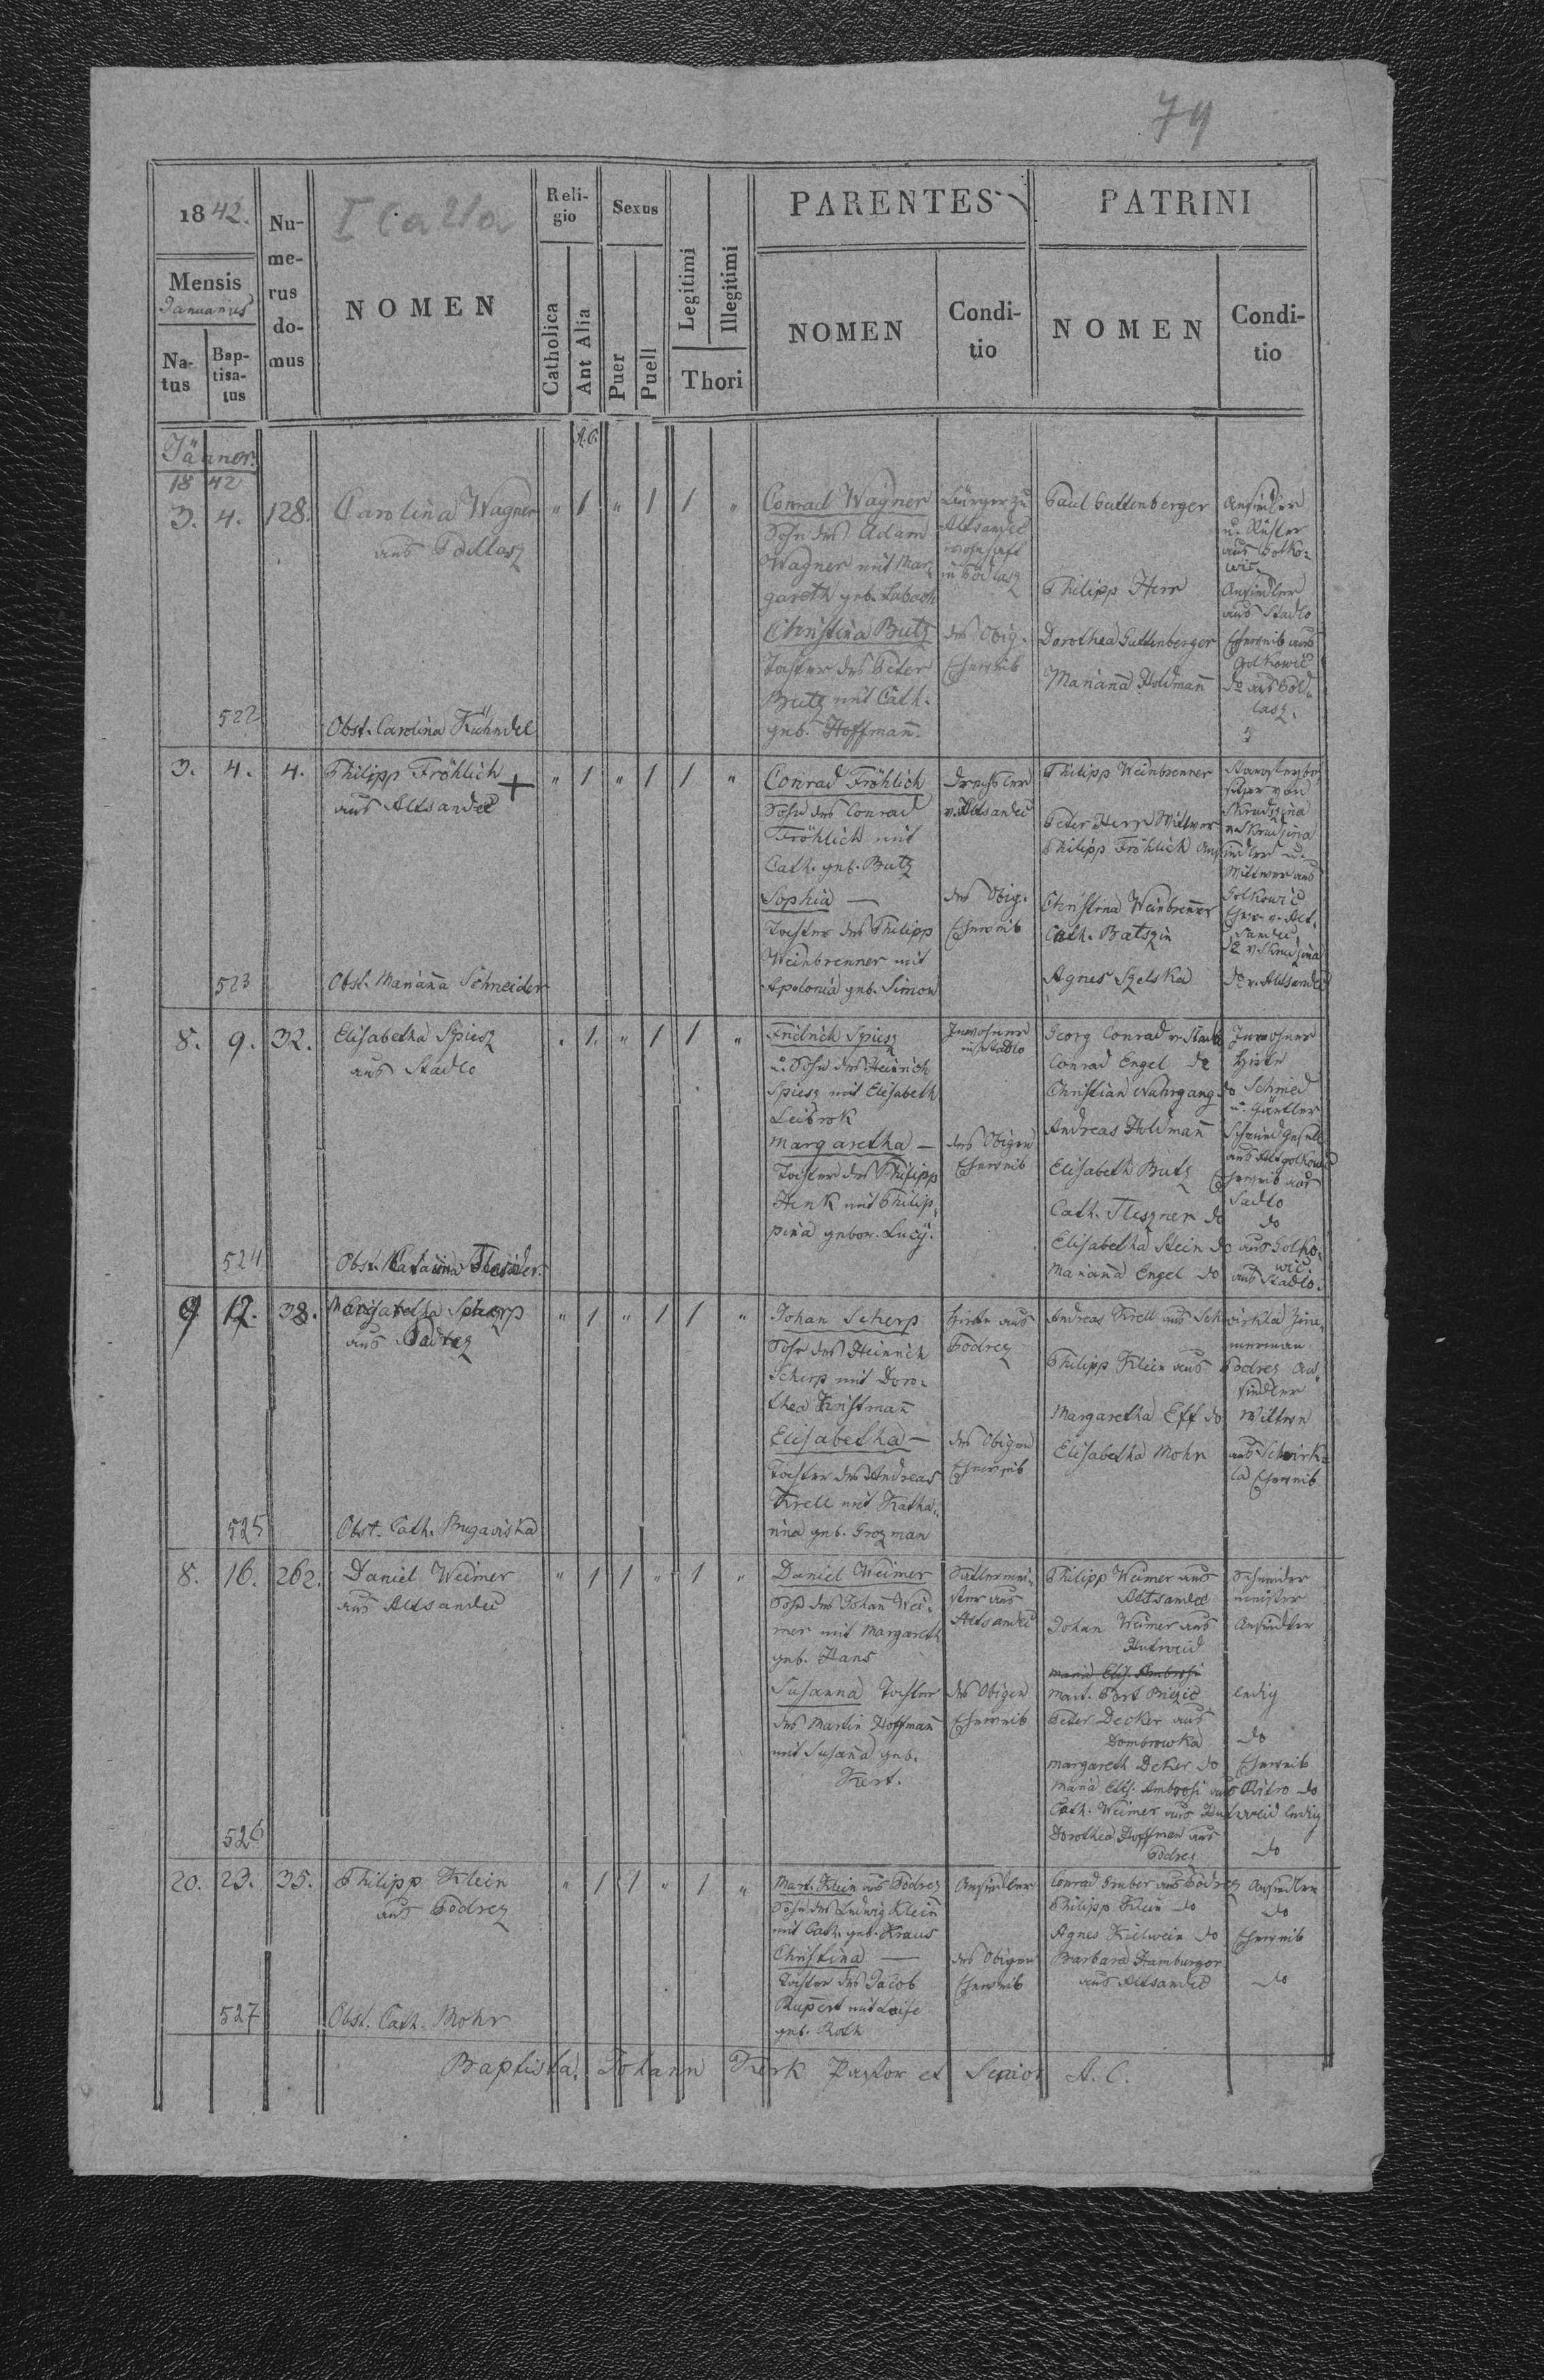 79
1842.
Mensis
Januarius
Natus
Baptisatus
Numerus domus
NOMEN
Religio
Catholica
Aut Alia
Sexus
Puer
Puell
Legitimi
Illegitimi
Thori
PARENTES
NOMEN
Conditio
PATRINI
NOMEN
Conditio
Jänner.
1842
A.C.
3. 4. 128. Carolina Wagner " 1 " 1 1 "
aus
522
Obst. Carolina Kühndel
Conrad Wagner
Sohn des Adam
Wagner mit Mar-
gareth geb. Labach
Christina Butz
Tochter des Peter
Butz mit Cath.
geb. Hoffmann.
Bürger zu
Altsandec
wohnhaft
in
des Obig.
Eheweib
Paul Guttenberger
Philipp Herr
Dorothea Guttenberger
Marianna Holdmann
Ansiedler
u. Küster
aus Golko-
wic.
Ansiedler
aus Stadlo
Eheweib aus
Golkowic
do aus
3. 4. 4. Philipp Fröhlich + " 1 " 1 1 "
aus Altsandec
523
Obst. Marianna Schneider
Conrad Fröhlich
Sohn des Conrad
Fröhlich mit
Cath. geb. Butz
Sophia —
Tochter des Philipp
Weinbrenner mit
Apolonia geb. Simon
Drechsler
v. Altsandec
des Obig.
Eheweib
Philipp Weinbrenner
Peter Herr Wittwer
Philipp Fröhlich
Christina Weinbrenner
Cath. Batszin
Agnes Szelska
Skrudzina
v. Skrudzina
Ansiedler u.
Wittwer aus
Golkowic
Ehew. v. Alt-
sandec
do v. Skrudzina
do v. Altsandec
8. 9. 32. Elisabetha Spiesz " 1. " 1 1 "
aus Stadlo
524
Obst.
Fridrich Spiesz
u. Sohn des Heinrich
Spiesz mit Elisabeth
Leibrok
Margaretha —
Tochter des Philipp
Henk mit Philip-
pina gebor. Lucÿ.
Inwohner
in Stadlo
des Obigen
Eheweib
Georg Conrad v. Stadlo
Conrad Engel do
Christian Nahrgang do
Andreas Holdmann
Elisabeth Butz
Cath. Fleszner do
Elisabetha Stein do
Marianna Engel do
Inwohner
Hirte
Schmied
u. Gärtler
Schmiedgesell
aus Altgolkowic
Eheweib aus
Sadlo
do
aus Golko-
wic.
aus Stadlo.
9 12. 38. " 1 " 1 1 "
aus
525
Obst. Cath.
Johan Scherp
Sohn des Heinrich
Scherp mit Doro-
thea Kristmann
Elisabetha —
Tochter des Andreas
Krell mit Katha-
rina geb. Grozman
Hirte aus
Podrez
des Obigen
Eheweib
Andreas Krell aus Schwirkla Zim-
merman
Philipp Klein aus Podrez An-
siedler
Margaretha Eff do Wittwe
Elisabetha Mohr
aus Schwirk-
la Eheweib
8. 16. 262. Daniel Weimer " 1 1 " 1 "
aus Altsandec
526
Daniel Weimer
Sohn des Johan Wei-
mer mit Margareth
geb. Hans
Susanna Tochter
des Martin Hoffmann
mit Susanna geb.
Kert.
Sattlermei-
ster aus
Altsandec
des Obigen
Eheweib
Philipp Weimer aus
Altsandec
Johan Weimer aus
Hutweid
Maria Elis. Ambrosi
Mart.
Peter Decker aus
Dombrowka
Margareth Deker do
Maria Elis. Ambrosi aus Ritro do
Cath. Weimer aus Hutweid ledig
Dorothea Hoffman aus
Podrez
Schneider
meister
Ansiedler
ledig
do
Eheweib
do
20. 23. 35. Philipp Klein " 1 1 " 1 "
aus Podrez
527
Obst. Cath. Mohr
Mart. Klein aus Podrez
Sohn des Ludwig Klein
mit Cath. geb. Kraus
Christina —
Tochter des Jacob
Rupert mit Loise
geb. Roth
Ansiedler
des Obigen
Eheweib
Conrad Gruber aus Podrez
Philipp Klein do
Agnes Kielwein do
Barbara Hamburger
aus Altsandec
Ansiedler
do
Eheweib
do
Baptista. Johann Pastor et Senior A. C.